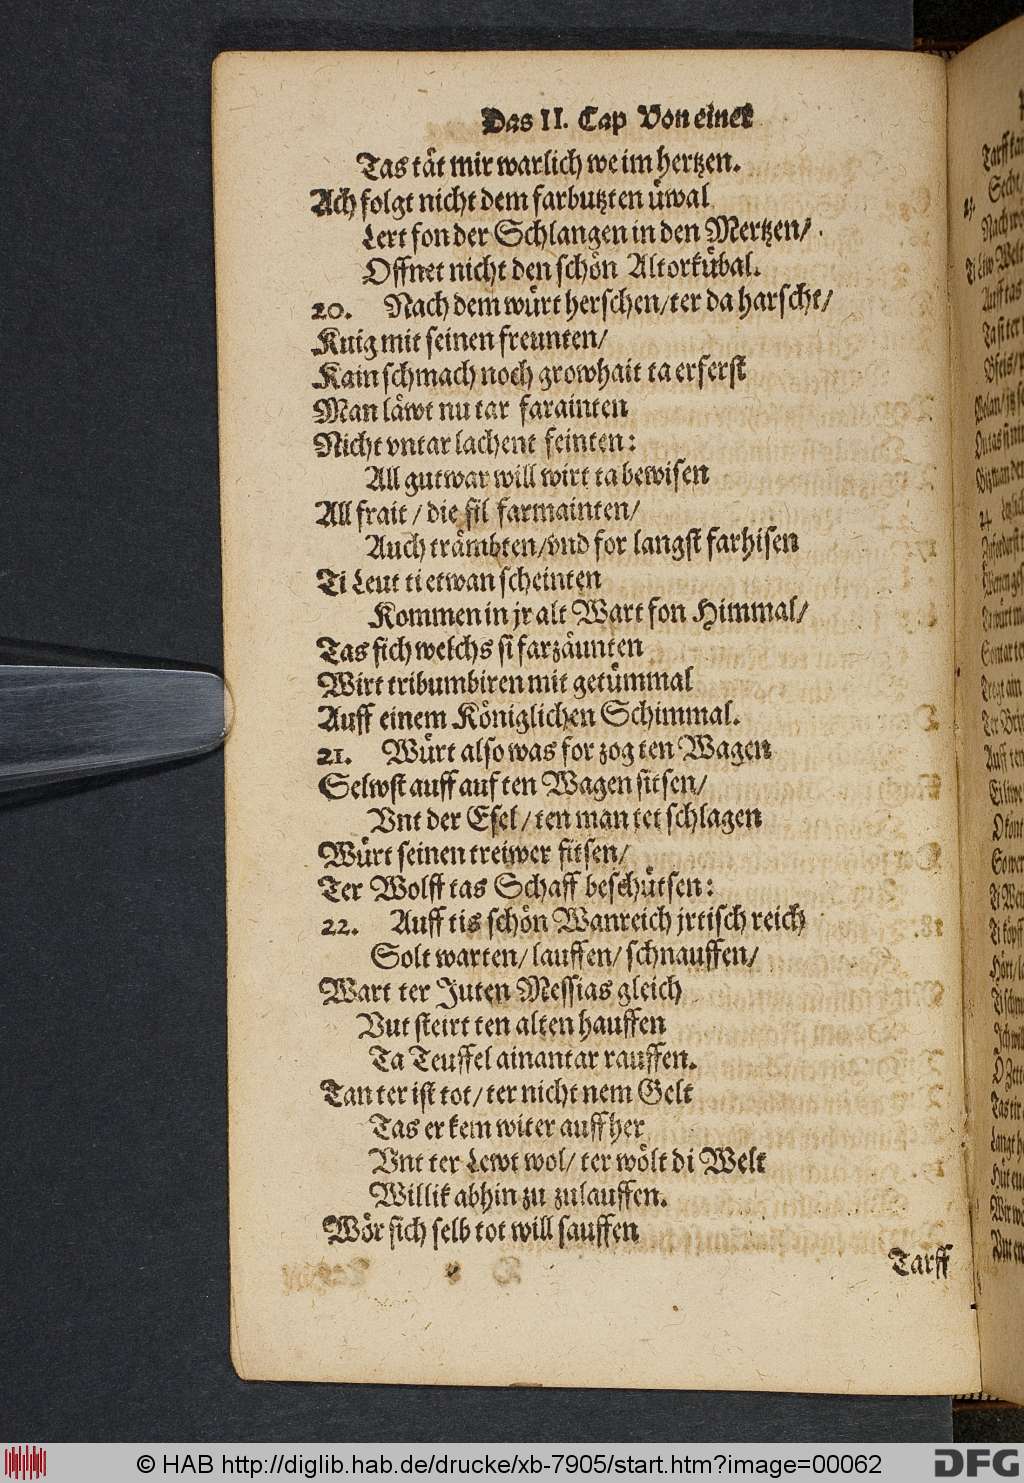 Das II. Cap Von einer
Tas tät mir warlich we im hertzen.
Ach folgt nicht dem farbutzten üwal
Lert fon der Schlangen in den Mertzen/
Offnet nicht den schön Altorkübal.
20. Nach dem würt herschen/ter da harscht/
Knig mit seinen freunten/
Kain schmach noch growhait ta erferst
Man läwt nu tar farainten
Nicht vntar lachent feinten:
All gutwar will wirt ta bewisen
All frait / die fil farmainten/
Auch trämbten/vnd for langst farhisen
Ti Leut ti etwan scheinten
Kommen in jr alt Wart fon Himmal/
Tas sich welchs si farzäunten
Wirt tribumbiren mit getümmal
Auff einem Königlichen Schimmal.
21. Würt also was for zog ten Wagen
Selwst auff auf ten Wagen sitsen/
Vnt der Esel / ten man tet schlagen
Würt seinen treiwer fitsen/
Ter Wolff tas Schaff beschütsen:
22. Auff tis schön Wanreich jrtisch reich
Solt warten/ lauffen/ schnauffen/
Wart ter Juten Messias gleich
Vut steirt ten alten hauffen
Ta Teuffel ainantar rauffen.
Tan ter ist tot/ ter nicht nem Gelt
Tas er kem witer auff her
Vnt ter Lewt wol/ ter wölt di Welt
Willik abhin zu zulauffen.
Wör sich selb tot will sauffen
Tarff
© HAB http://diglib.hab.de/drucke/xb-7905/start.htm?image=00062
DFG